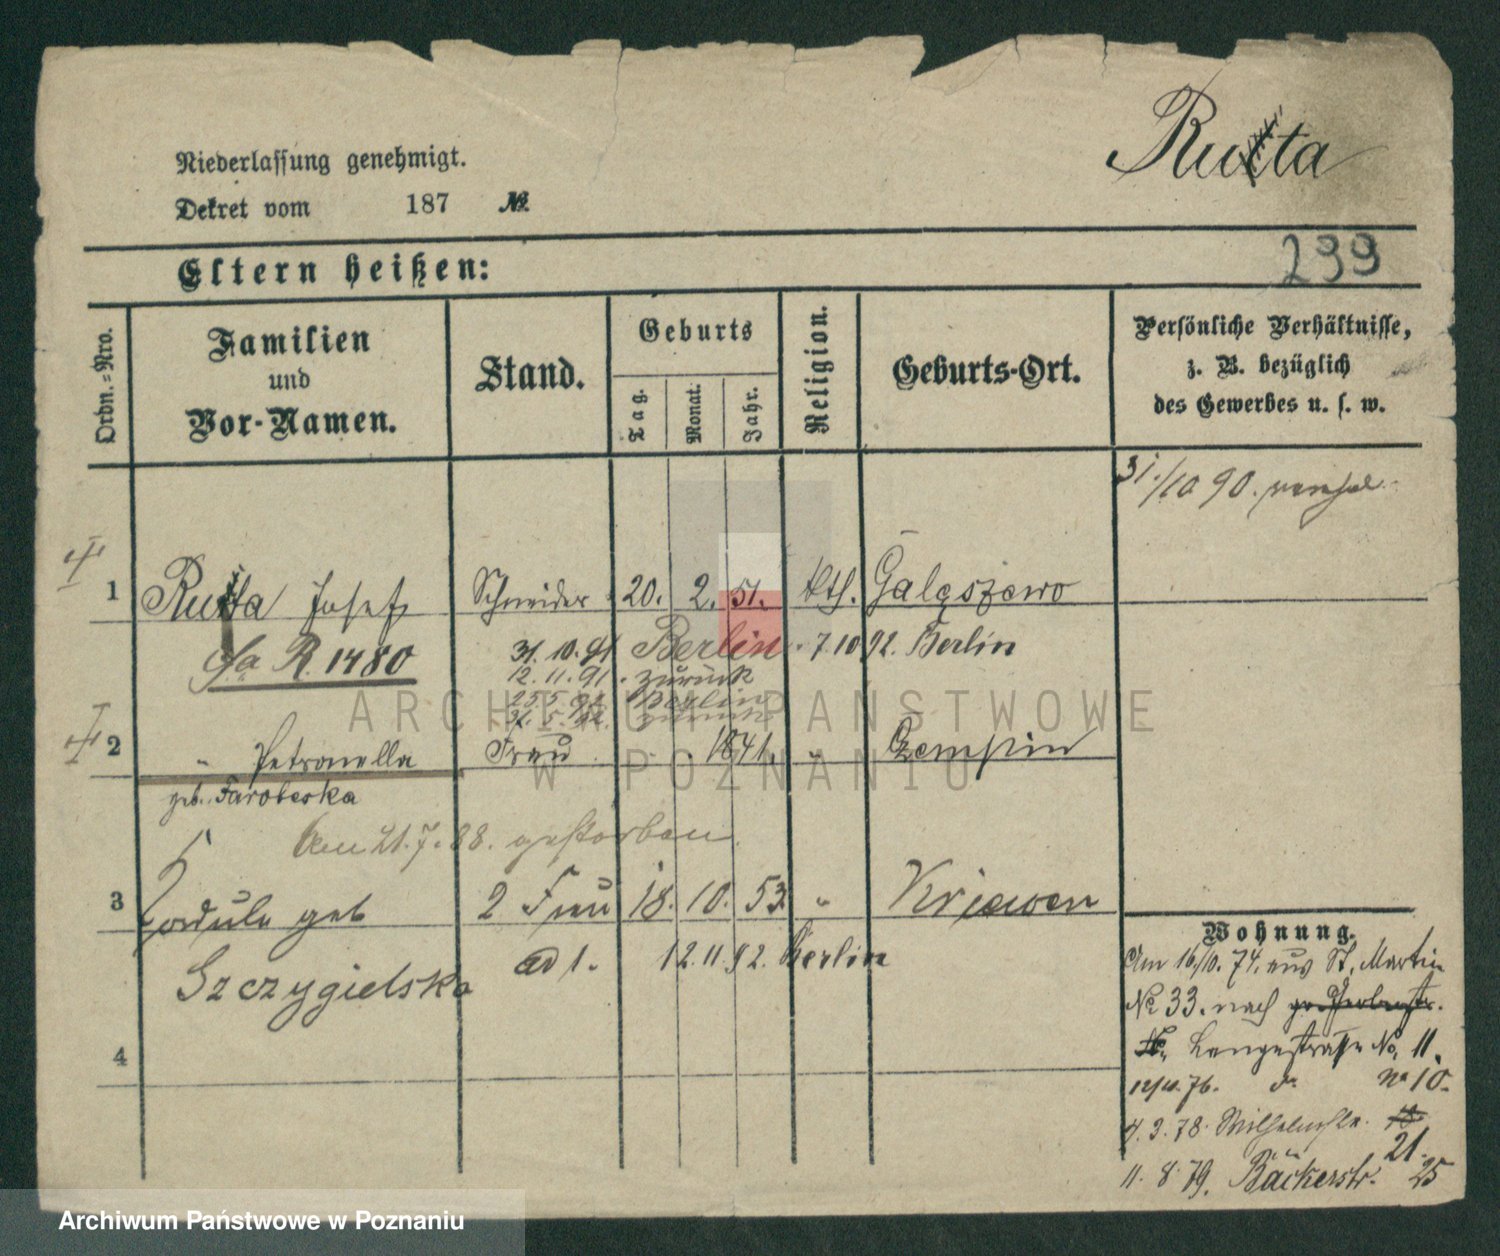 Rutta
Niederlassung genehmigt.
Dekret vom 187 №
299
Eltern heißen:
Ordn.=Nro.
Familien
und
Vor-Namen.
Stand.
Geburts
Tag.
Monat.
Jahr.
Religion.
Geburts-Ort.
Persönliche Verhältnisse,
z. B. bezüglich
des Gewerbes u. s. w.
31./10 90.
1 Rutta Josef Schneider 20. 2. 51. kth. Gałązewo
R. 1480
31. 10. 91 Berlin. 7.10 92. Berlin
12. 11. 91. zurück
25.5.92 Berlin
31. 5. 92. zurück
2 " Petronella Frau 1841. " Czempin
geb.
Am 21. 7. 88. gestorben
3 Kordula geb 2 Frau 18. 10. 53. " Kriewen
Szczygielska ad 1. 12. 11. 92. Berlin
4
Wohnung.
Am 16/10. 74. aus St. Martin
No 33. nach
Langestrasse No. 11.
76. do No 10.
4. 3. 78. Wilhelmstr.
21.
11. 8. 79. Bäckerstr. 25
ARCHIWUM PAŃSTWOWE
W POZNANIU
Archiwum Państwowe w Poznaniu